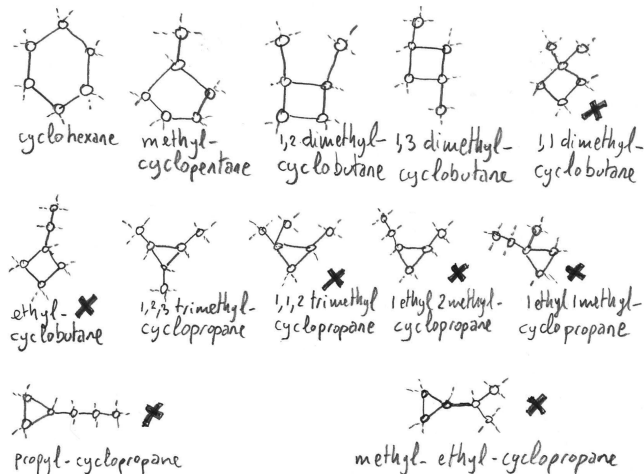 cyclohexane
methyl-
cyclopentane
1,2 dimethyl-
cyclobutane
1,3 dimethyl-
cyclobutane
1,1 dimethyl-
cyclobutane
ethyl-
cyclobutane
1,2,3 trimethyl-
cyclopropane
1,1,2 trimethyl
cyclopropane
1 ethyl 2 methyl-
cyclopropane
1 ethyl 1 methyl-
cyclopropane
propyl-cyclopropane
methyl-ethyl-cyclopropane